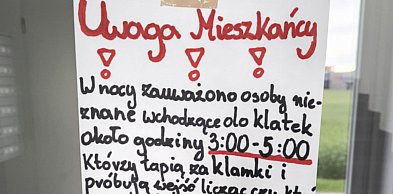 Uwaga Mieszkańcy
! ! !
W nocy zauważono osoby nie-
znane wchodzące do klatek
około godziny 3:00-5:00
Którzy łapią za klamki i
próbują wejść licząc czy